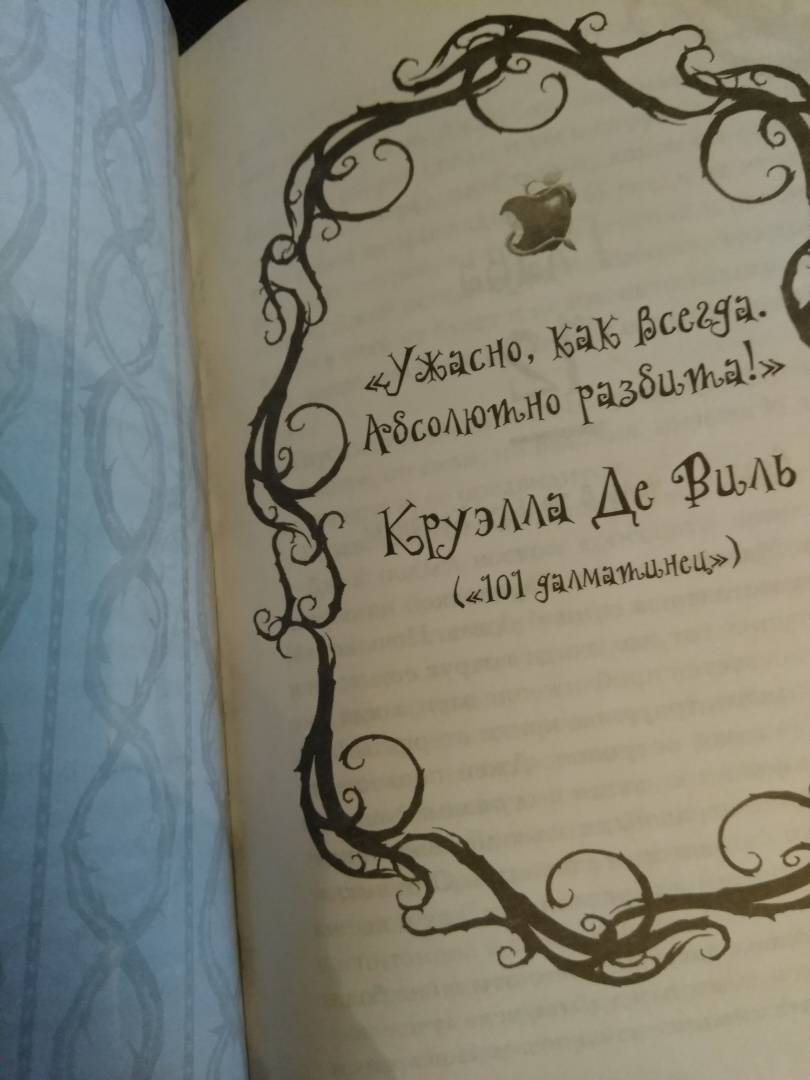 «Ужасно, как всегда.
Абсолютно разбита!»
Круэлла Де Виль
(«101 далматинец»)